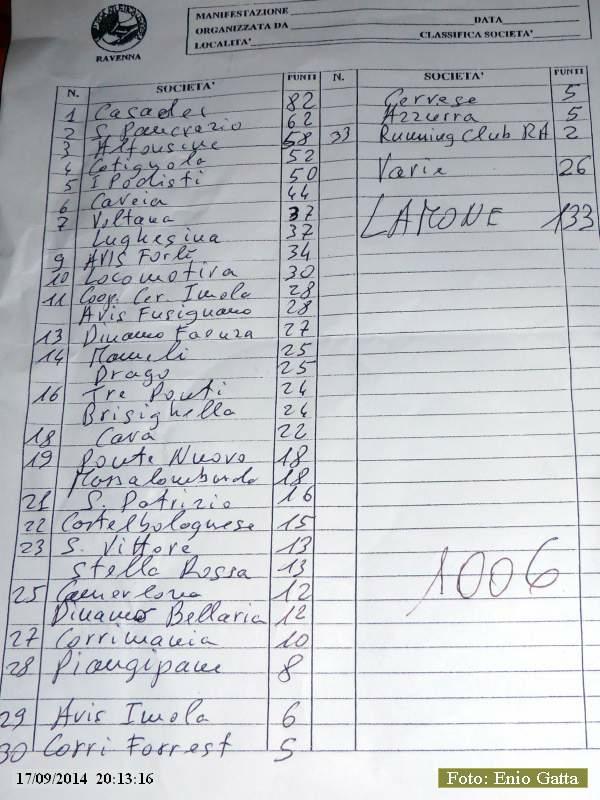 RAVENNA
MANIFESTAZIONE
ORGANIZZATA DA DATA
LOCALITA' CLASSIFICA SOCIETA'
N. SOCIETA' PUNTI
1 Casadei 82
2 S. Pancrazio 62
3 Alfonsine 58
4 Cotignola 52
5 I Podisti 50
6 Caveia 44
7 Voltana 37
Lughesina 37
9 AVIS Forlì 34
10 Locomotiva 30
11 Coop. Cer. Imola 28
Avis Fusignano 28
13 Dinamo Faenza 27
14 Mameli 25
Drago 25
16 Tre Ponti 24
Brisighella 24
18 Cava 22
19 Ponte Nuovo 18
Massalombarda 18
21 S. Patrizio 16
22 Castelbolognese 15
23 S. Vittore 13
Stella Rossa 13
25 Camerlona 12
Dinamo Bellaria 12
27 Corrimania 10
28 Piangipane 8
29 Avis Imola 6
30 Corri Forrest 5
N. SOCIETA' PUNTI
Cervese 5
Azzurra 5
33 Running Club RA 2
Varie 26
LAMONE 133
1006
17/09/2014 20:13:16
Foto: Enio Gatta